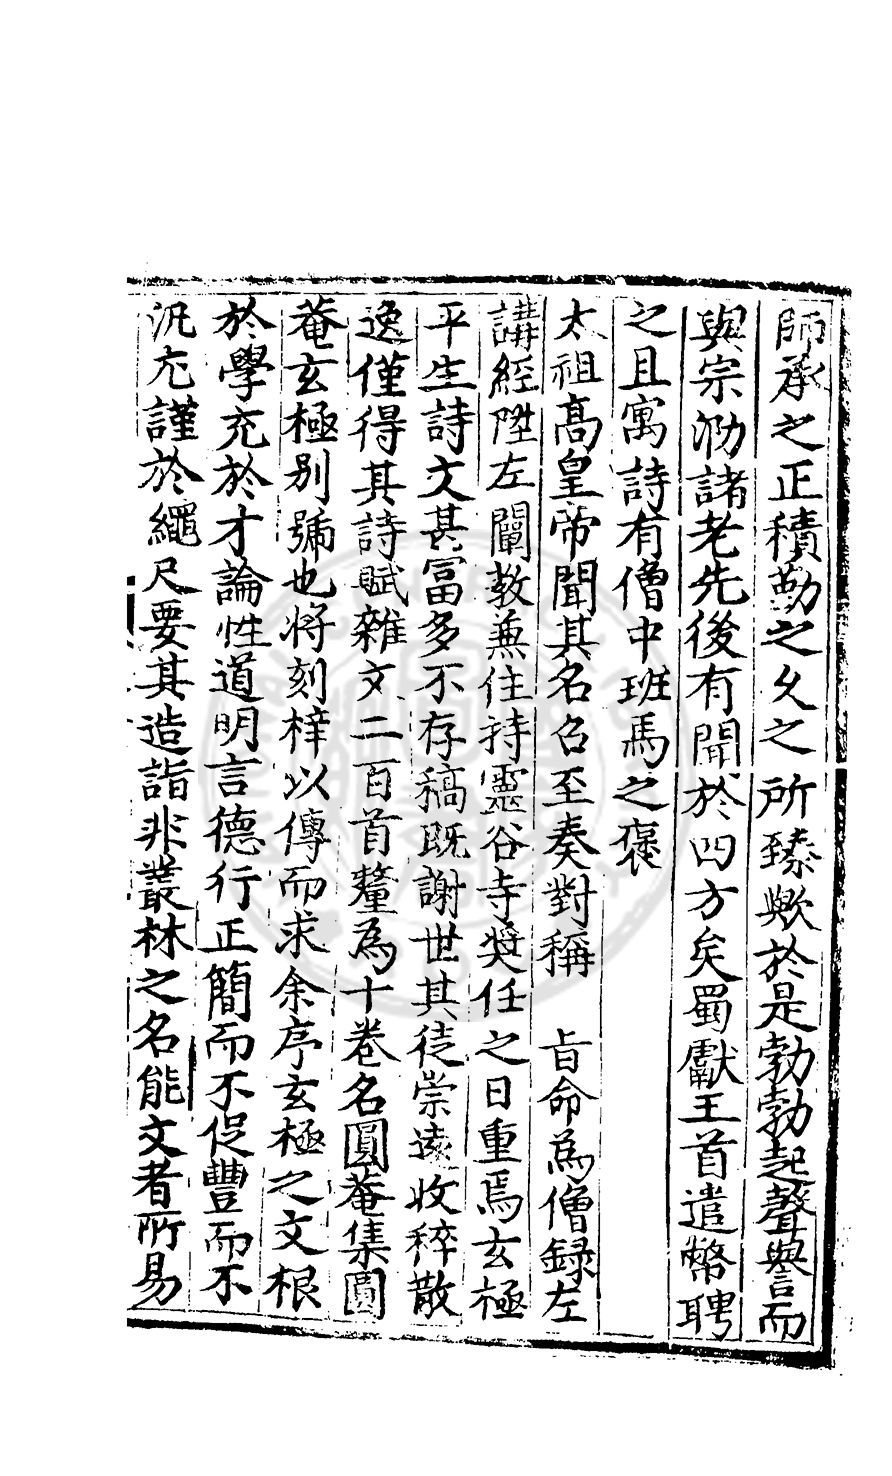 師承之正積勤之久之所臻歟於是勃勃起聲譽而
與宗泐諸老先後有聞於四方矣蜀獻王首遣幣聘
之且寓詩有僧中班馬之褒
太祖高皇帝聞其名召至奏對稱　旨命為僧録左
講經陞左闡教兼住持靈谷寺奬任之日重焉玄極
平生詩文甚富多不存稿既謝世其徒崇遠收稡散
逸僅得其詩賦雜文二百首釐為十卷名圓菴集圓
菴玄極别號也将刻梓以傳而求余序玄極之文根
於學充於才論性道明言德行正簡而不促豐而不
汎尤謹於繩尺要其造詣非叢林之名能文者所易